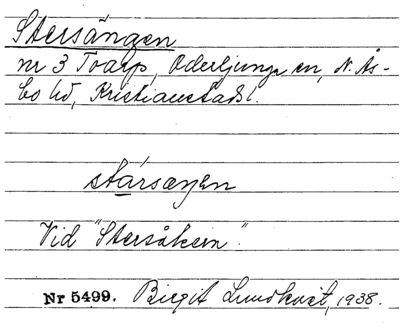 Stersängen
nr 3 Toarp, Oderljunga sn, N. Ås-
bo hd, Kristianstads l.
stársæŋen
Vid "Stersåkern".
Nr 5499. Birgit Lundkvist, 1938.